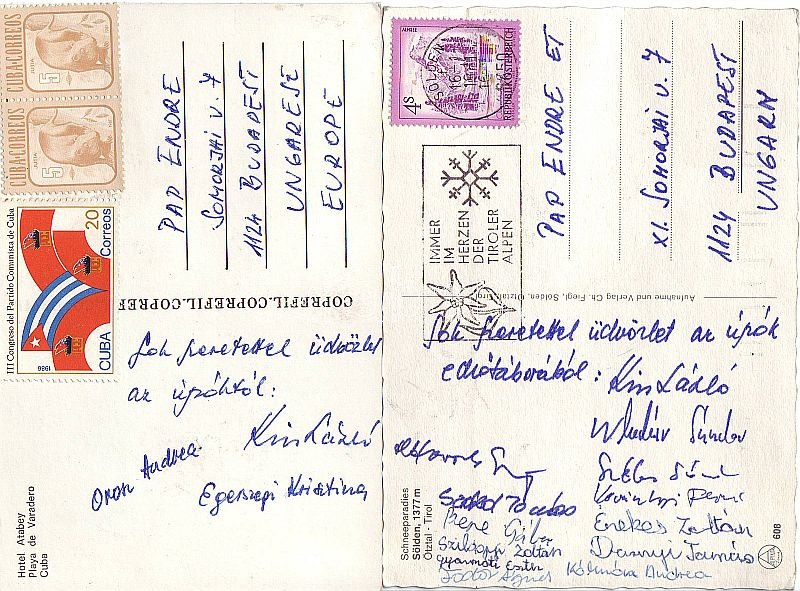 CUBA·CORREOS
JUTIA
5
CUBA·CORREOS
JUTIA
5
III Congreso del Partido Comunista de Cuba
20
Correos
CUBA
1986
PAP ENDRE
SOMORJAI U. 7
1124 BUDAPEST
UNGARESE
EUROPE
COPREFIL.COPREFIL.COPREF
Sok szeretettel üdvözlet
az úszóktól:
Kiss László
Oros Andrea
Egerszegi Krisztina
Hotel Atabey
Playa de Varadero
Cuba
4S
REPUBLIK ÖSTERREICH
SÖLDEN
6450
IMMER
IM
HERZEN
DER
TIROLER
ALPEN
PAP ENDRE ET
XI. SOMORJAI U. 7
1124 BUDAPEST
UNGARN
Aufnahme und Verlag Ch. Fiegl, Sölden, Ötztal, Tirol
Sok szeretettel üdvözlet az úszók
edzőtáborából: Kiss László
Sándor
Szabó Tamás
Gábor
Zoltán
Gyarmati Eszter
Fodor Ágnes
Zoltán
Darnyi Tamás
Andrea
Schneeparadies
Sölden, 1377 m
Ötztal - Tirol
608